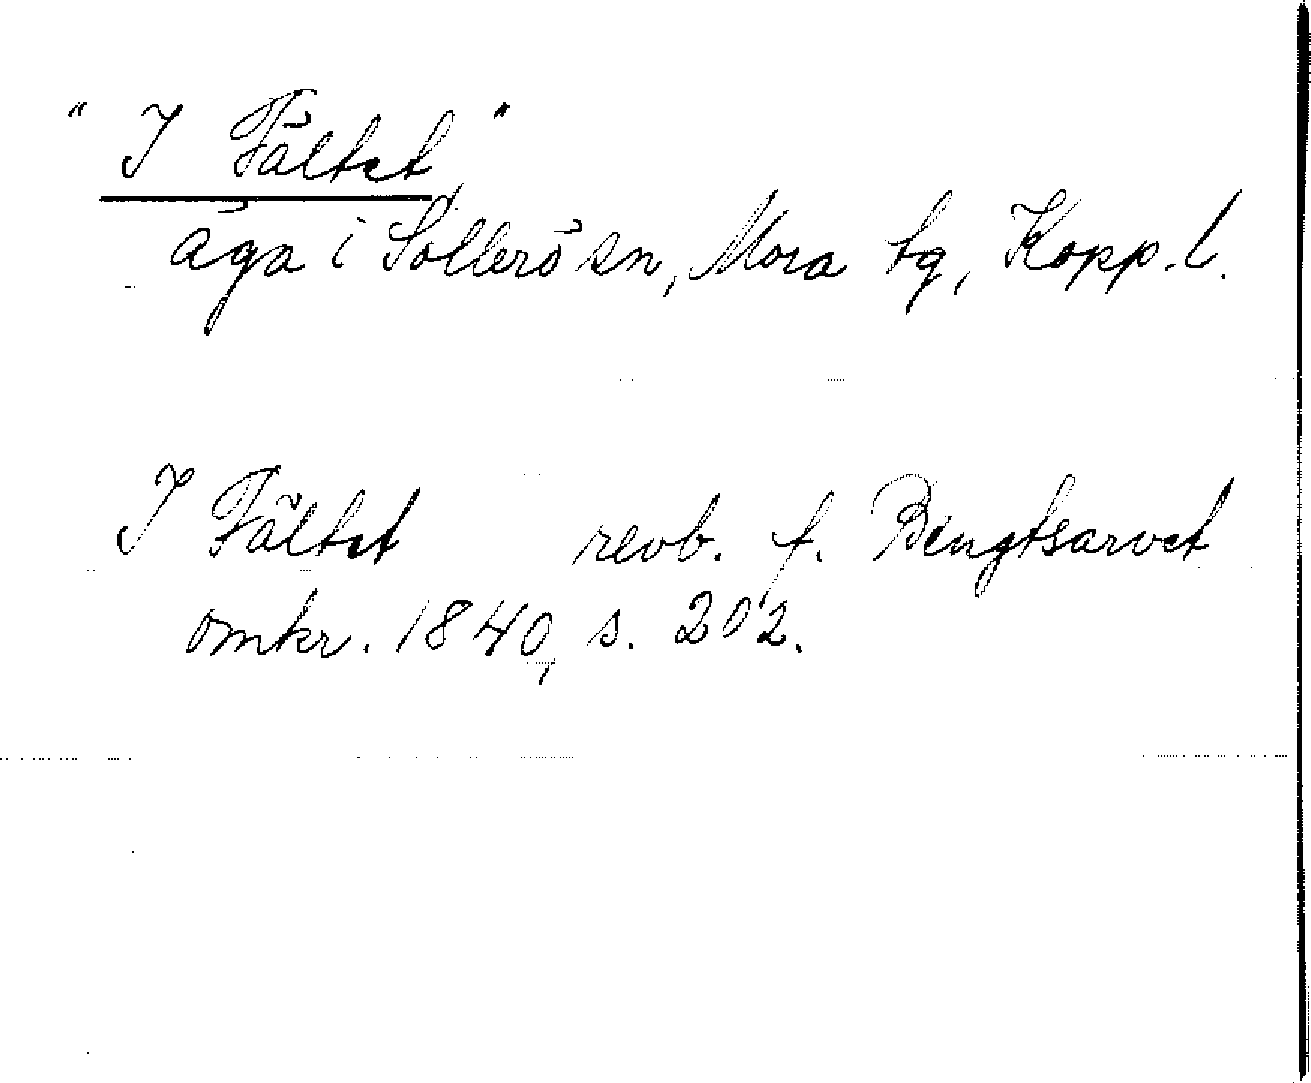 "I Fältet"
äga i Sollerö sn, Mora tg, Kopp. l.
I Fältet revb. f. Bengtsarvet
omkr. 1840, s. 202.